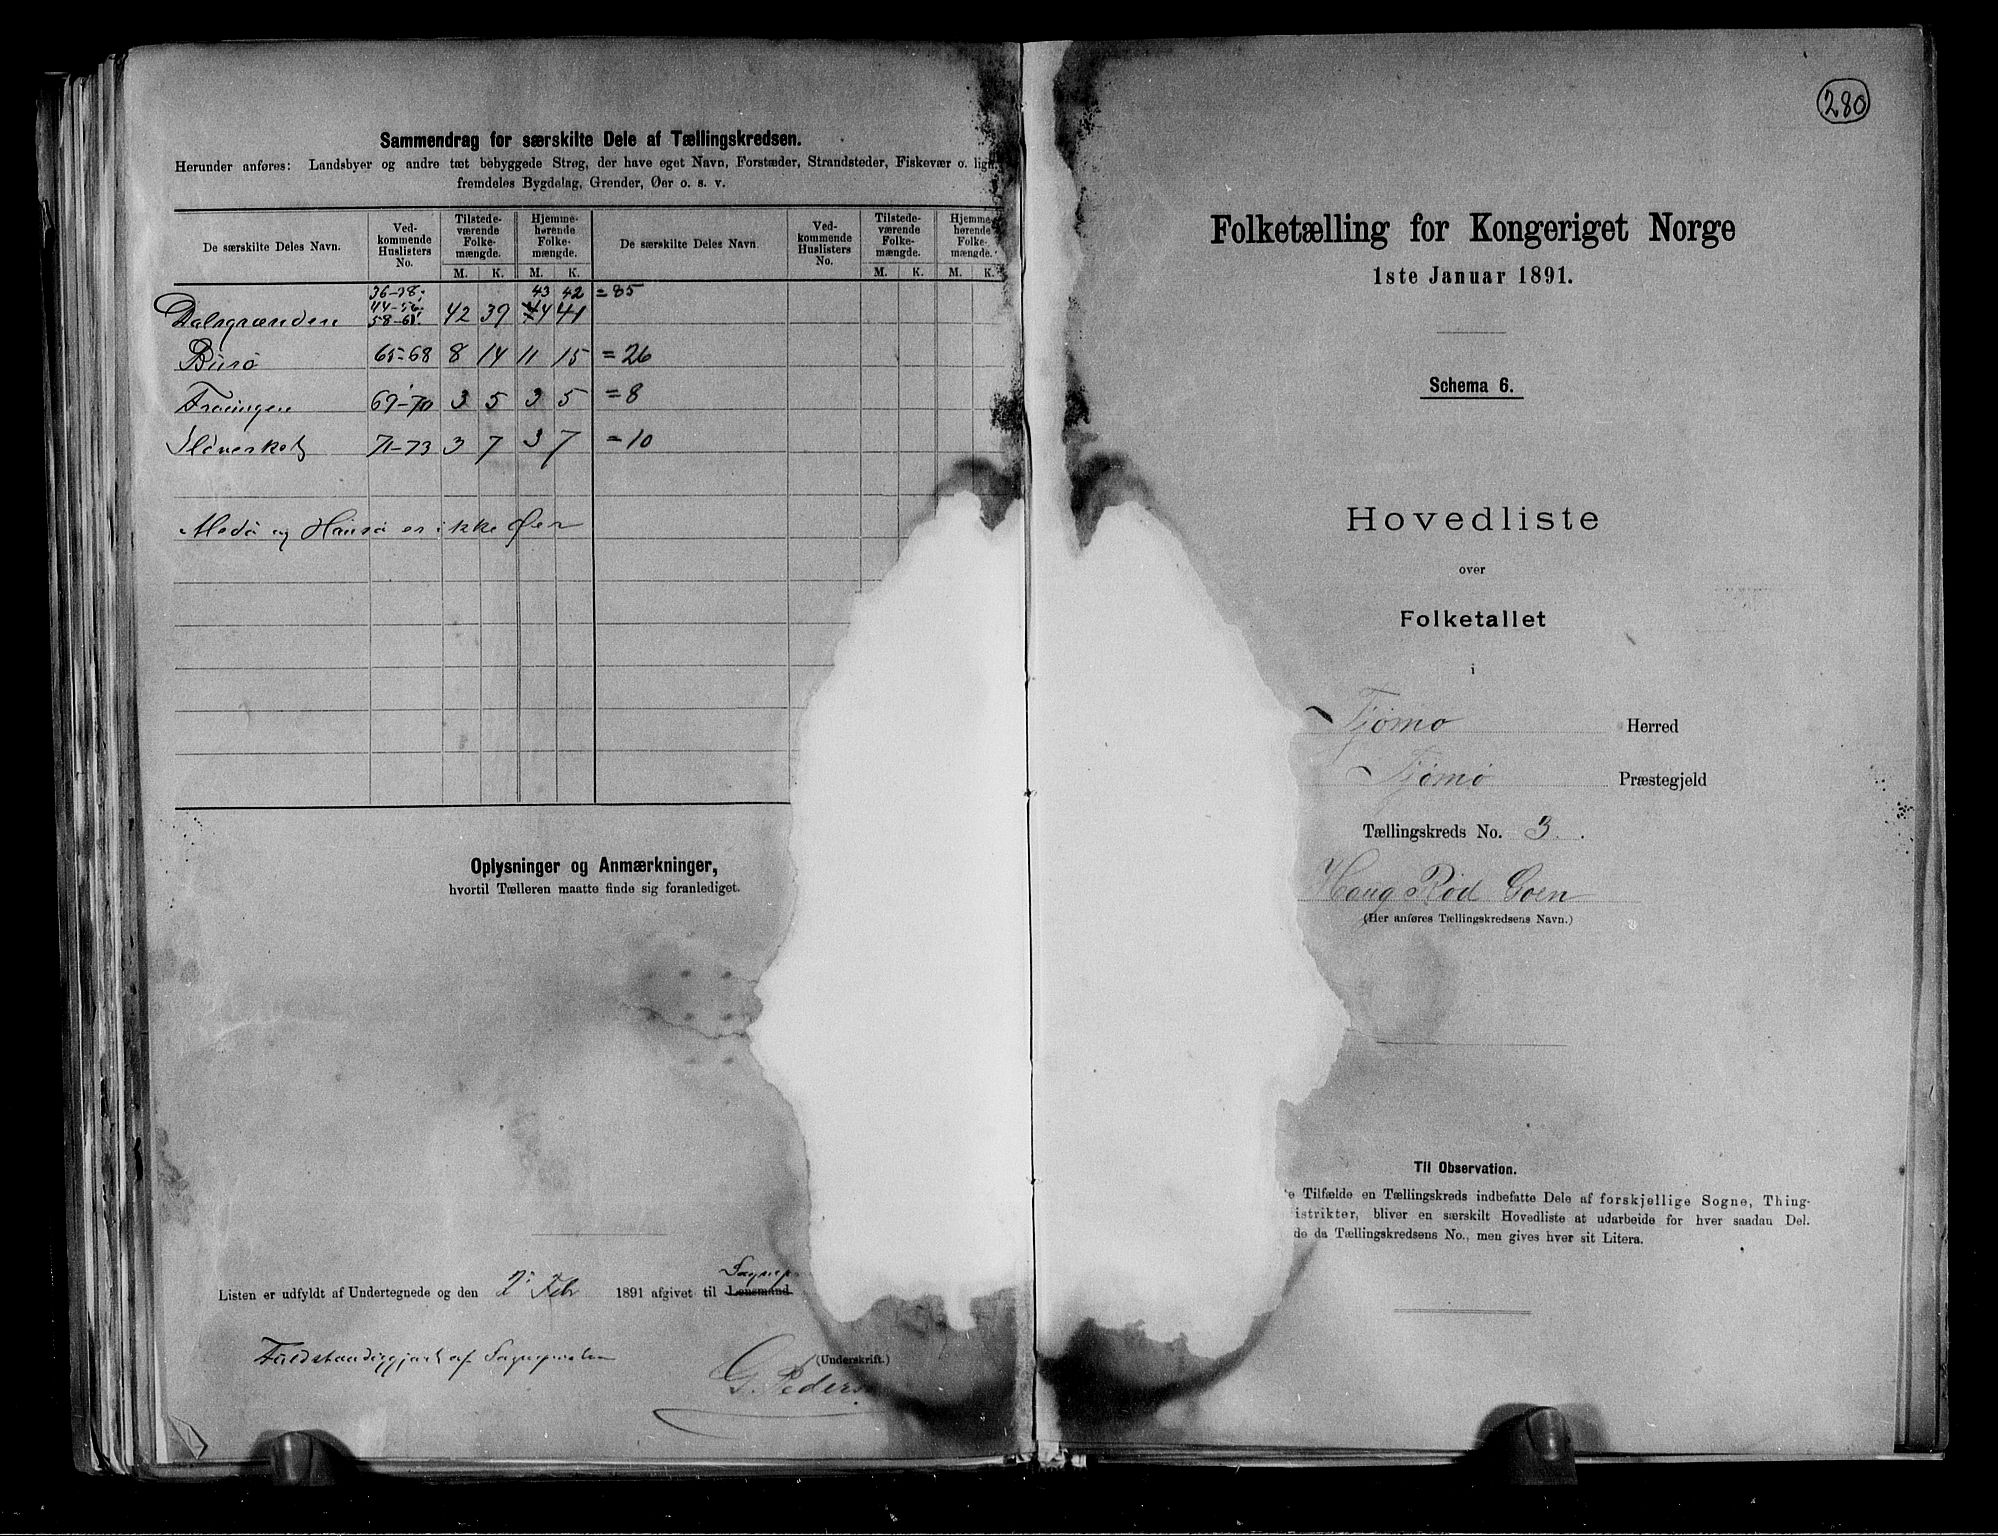 Sammendrag for særskilte Dele af Tællingskredsen.
Herunder anføres: Landsbyer og andre tæt bebyggede Strøg, der have eget Navn, Forstæder, Strandsteder, Fiskevær o. lign.
fremdeles Bygdelag, Grender, Øer o. s. v.
De særskilte Deles Navn. Ved-kommende Huslisters No. Tilstede-værende Folke-mængde. Hjemme-hørende Folke-mængde. De særskilte Deles Navn. Ved-kommende Huslisters No. Tilstede-værende Folke-mængde. Hjemme-hørende Folke-mængde.
M. K. M. K. M. K. M. K.
36-38; 43 42 = 85
44-56;
Dalsgrænden 58-61. 42 39 44 41
Burø 65-68 8 14 11 15 = 26
69-70 3 5 3 5 = 8
71-73 3 7 3 7 = 10
Medø og Hansø er ikke Øer
Oplysninger og Anmærkninger,
hvortil Tælleren maatte finde sig foranlediget.
Listen er udfyldt af Undertegnede og den 2 Febr 1891 afgivet til Lensmand Sognep
Fuldstændiggjort af Sognepresten
(Underskrift.)
G. Peders
280
Folketælling for Kongeriget Norge
1ste Januar 1891.
Schema 6.
Hovedliste
over
Folketallet
i
Tjømø Herred
Tjømø Præstegjeld
Tællingskreds No. 3.
Haug Rød Goen
(Her anføres Tællingskredsens Navn.)
Til Observation.
Tilfælde en Tællingskreds indbefatte Dele af forskjellige Sogne, Thing-
istrikter, bliver en særskilt Hovedliste at udarbeide for hver saadan Del.
de da Tællingskredsens No., men gives hver sit Litera.